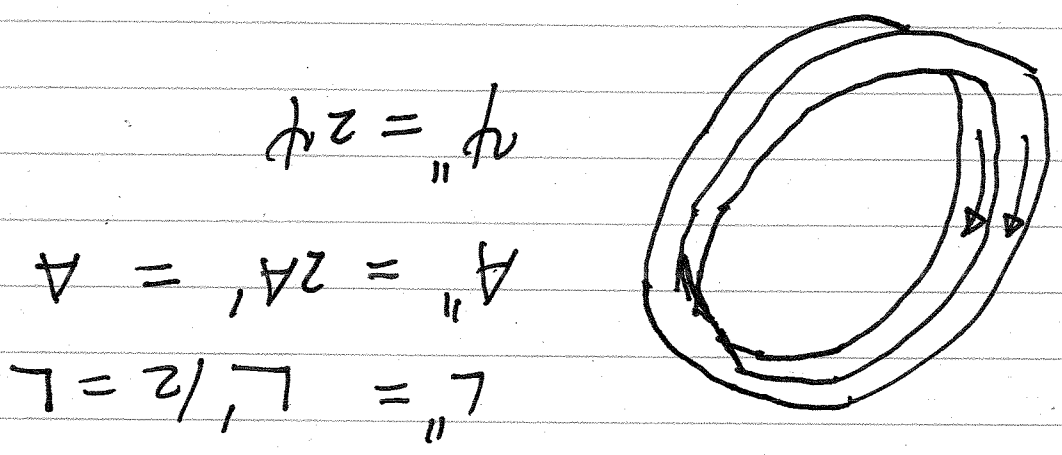 L'' = L'/2 = L
A'' = 2A' = A
ψ'' = 2ψ